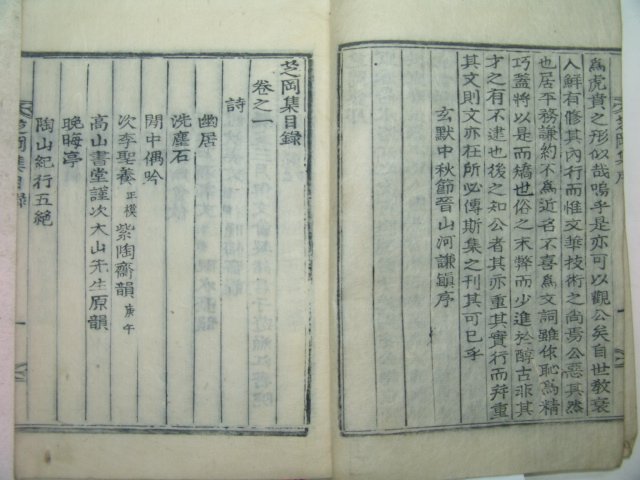 爲虎賁之形似哉嗚乎是亦可以觀公矣自世敎衰
人鮮有修其內行而惟文華技術之尙焉公惡其然
也居平務謙約不爲近名不喜爲文詞雖依恥爲精
巧蓋將以是而矯世俗之末弊而少進於醇古非其
才之有不逮也後之知公者其亦重其實行而幷重
其文則文亦在所必傳斯集之刊其可已乎
玄默中秋節晉山河謙鎭序
芝岡集目錄
卷之一
詩
幽居
洗塵石
閒中偶吟
次李聖養正樸紫陶齋韻庚午
高山書堂謹次大山先生原韻
晩晦亭
陶山紀行五絶
芝岡集目錄
一